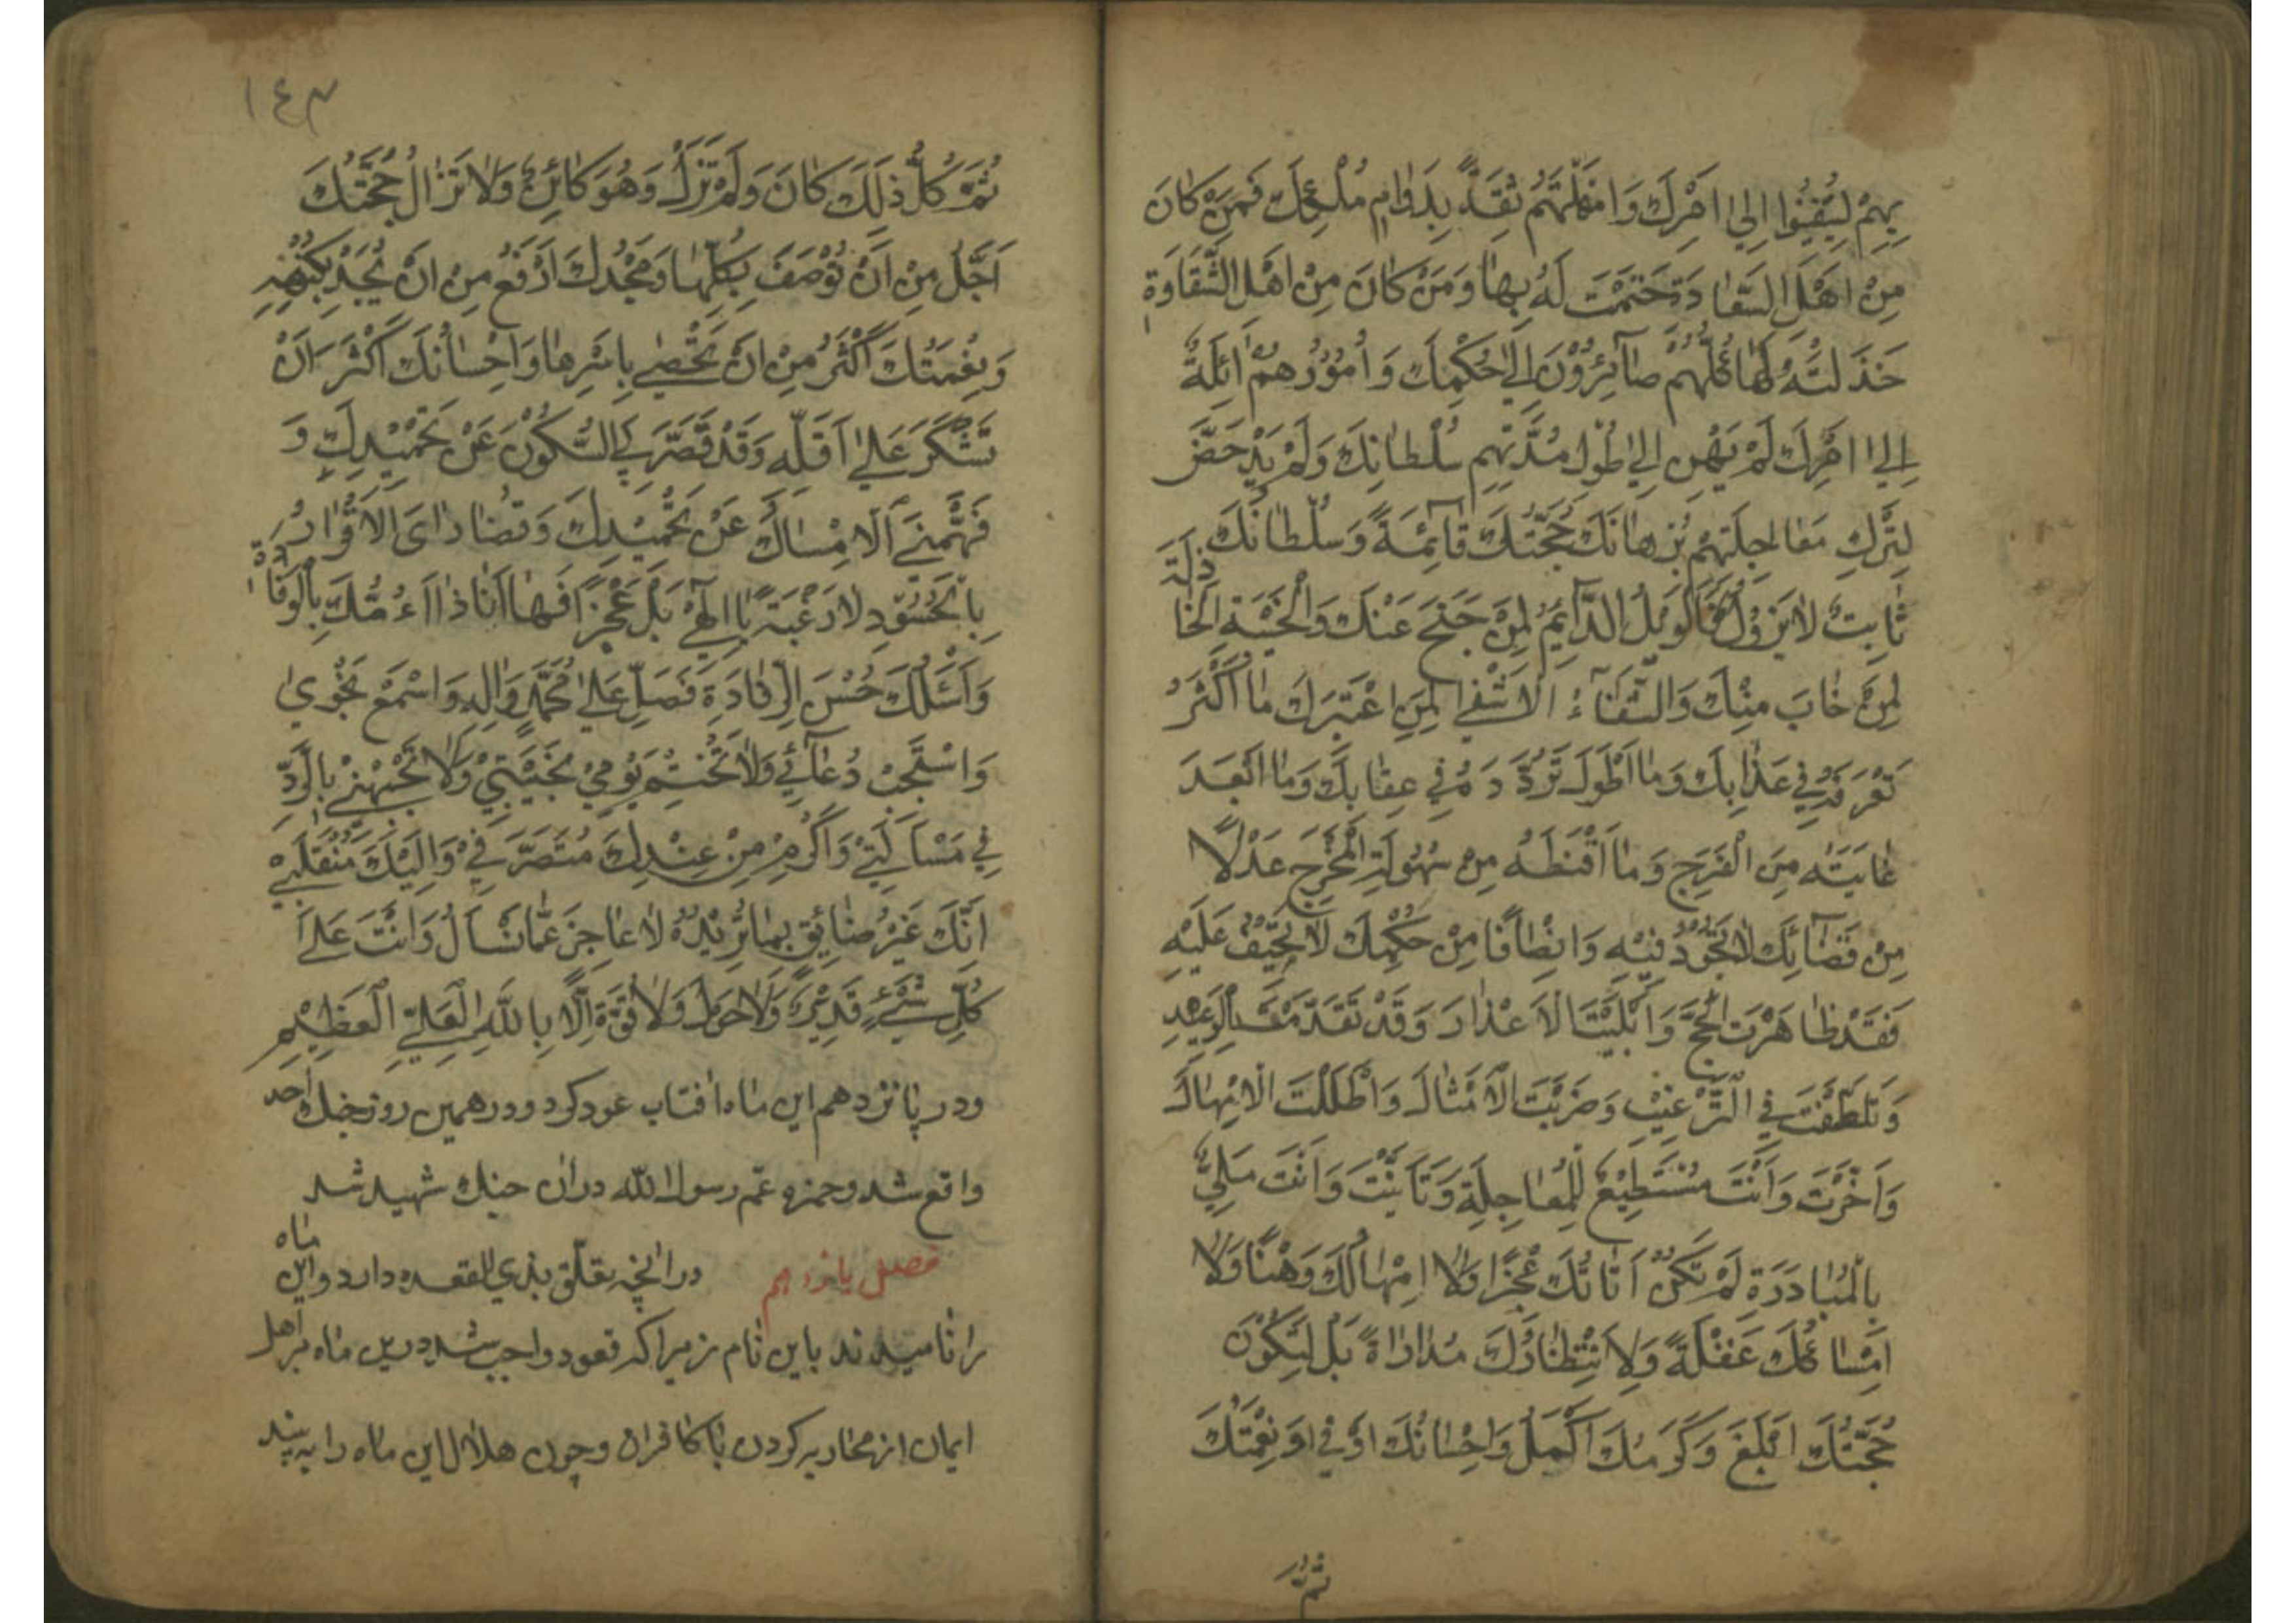 بِهِمْ لِيُفِيئُوا اِلىٰ اَمْرِكَ وَاَمْهَلْتَهُمْ ثِقَةً بِدَوٰامِ مُلْكِكَ فَمَنْ كٰانَ
مِنْ اَهْلِ السَّعٰادَةِ خَتَمْتَ لَهُ بِهٰا وَمَنْ كٰانَ مِنْ اَهْلِ الشَّقٰاوَةِ
خَذَلْتَهُ لَهٰا كُلُّهُمْ صٰآئِرُوْنَ اِلىٰ حُكْمِكَ وَاُمُوْرُهُمْ اٰئِلَةٌ
اِلىٰ اَمْرِكَ لَمْ يَهِنْ اِلىٰ طُوْلِ مُدَّتِهِمْ سُلْطٰانُكَ وَلَمْ يَدْحَضْ
لِتَرْكِ مَعٰاجِلَتِهِمْ بُرْهٰانُكَ حُجَّتُكَ قٰآئِمَةً وَسُلْطٰانُكَ
ثٰابِتٌ لٰا يَزُوْلُ فَالْوَيْلُ الدّٰآئِمُ لِمَنْ جَنَحَ عَنْكَ وَالْخَيْبَةِ الْخٰاذِلَةَ
لِمَنْ خٰابَ مِنْكَ وَالشَّقٰآءُ الْاَشْقىٰ لِمَنِ اغْتَرَّ بِكَ مٰا اَكْثَرَ
تَصَرُّفَهُ فِي عَذٰابِكَ وَمٰا اَطْوَلَ تَرَدُّدَهُ فِي عِقٰابِكَ وَمٰا اَبْعَدَ
غٰايَتَهُ مِنَ الْفَرَجِ وَمٰا اَقْنَطَهُ مِنْ سُهُوْلَةِ الْمَخْرَجِ عَدْلًا
مِنْ قَضٰآئِكَ لٰا تَجُوْرُ فِيْهِ وَاِنْصٰافًا مِنْ حُكْمِكَ لٰا تَحِيْفُ عَلَيْهِ
فَقَدْ ظٰاهَرْتَ الْحُجَجَ وَاَبْلَيْتَ الْاَعْذٰارَ وَقَدْ تَقَدَّمْتَ بِالْوَعِيْدِ
وَتَلَطَّفْتَ فِي التَّرْغِيْبِ وَضَرَبْتَ الْاَمْثٰالَ وَاَطْلَلْتَ الْاِمْهٰالَ
وَاَخَّرْتَ وَاَنْتَ مُسْتَطِيْعٌ لِلْمُعٰاجِلَةِ وَتَاَنَّيْتَ وَاَنْتَ مَلِيٌّ
بِالْمُبٰادَرَةِ لَمْ تَكُنْ اَنٰاتُكَ عَجْزًا وَلٰا اِمْهٰالُكَ وَهْنًا وَلٰا
اِمْسٰاكُكَ غَفْلَةً وَلَا انْتِظٰارُكَ مُدٰارٰاةً بَلْ لِتَكُوْنَ
حُجَّتُكَ اَبْلَغَ وَكَرَمُكَ اَكْمَلَ وَاِحْسٰانُكَ اَوْفىٰ وَنِعْمَتُكَ
تَمَّ
١٤٣
تَمَّ كُلُّ ذٰلِكَ كٰانَ وَلَمْ تَزَلْ وَهُوَ كٰائِنٌ وَلٰا تَزٰالُ حُجَّتُكَ
اَجَلُّ مِنْ اَنْ تُوْصَفَ بِكُلِّهٰا وَمَجْدُكَ اَرْفَعُ مِنْ اَنْ يُحَدَّ بِكُنْهِهِ
وَنِعْمَتُكَ اَكْثَرُ مِنْ اَنْ تُحْصىٰ بِاَسْرِهٰا وَاِحْسٰانُكَ اَكْثَرُ اَنْ
تَشْكَرَ عَلىٰ اَقَلِّهِ وَقَدْ قَصَّرَ بِيَ السُّكُوْنَ عَنْ تَحْمِيْدِكَ وَ
فَهَّمَنِي الْاِمْسٰاكُ عَنْ تَحْمِيْدِكَ وَقُصٰارٰايَ الْاِقْرٰارُ
بِالْحُسُوْرِ لٰا رَغْبَةً يٰا اِلٰهِيْ بَلْ عَجْزًا فَهٰا اَنَا ذٰا اَؤُمُّكَ بِالْوِفٰادَةِ
وَاَسْئَلُكَ حُسْنَ الرِّفٰادَةِ فَصَلِّ عَلىٰ مُحَمَّدٍ وَاٰلِهِ وَاسْمَعْ نَجْوٰيَ
وَاسْتَجِبْ دُعٰآئِي وَلٰا تَخْتِمْ يَوْمِيْ بِخَيْبَتِيْ وَلٰا تَجْبَهْنِيْ بِالرَّدِّ
فِي مَسْاَلَتِيْ وَاَكْرِمْ مِنْ عِنْدِكَ مُنْصَرَفِيْ وَاِلَيْكَ مُنْقَلَبِيْ
اِنَّكَ غَيْرُ ضٰائِقٍ بِمٰا تُرِيْدُ لٰا عٰاجِزٍ عَمّٰا تُسْاَلُ وَاَنْتَ عَلىٰ
كُلِّ شَيْءٍ قَدِيْرٌ وَلٰا حَوْلَ وَلٰا قُوَّةَ اِلّٰا بِاللّٰهِ الْعَلِيِّ الْعَظِيْمِ
ودر پانزدهم این ماه افتاب عود کرد ودر همین روز جنك احد
واقع شد وحمزه عم رسول الله در ان جنك شهید شد
فصل یازدهم درانچه تعلق بذي القعده دارد واین ماه
را نامیدند باین نام زیرا که قعود واجب شد درین ماه بر اهل
ایمان از محاربه کردن با کافران وچون هلال این ماه را به بیند